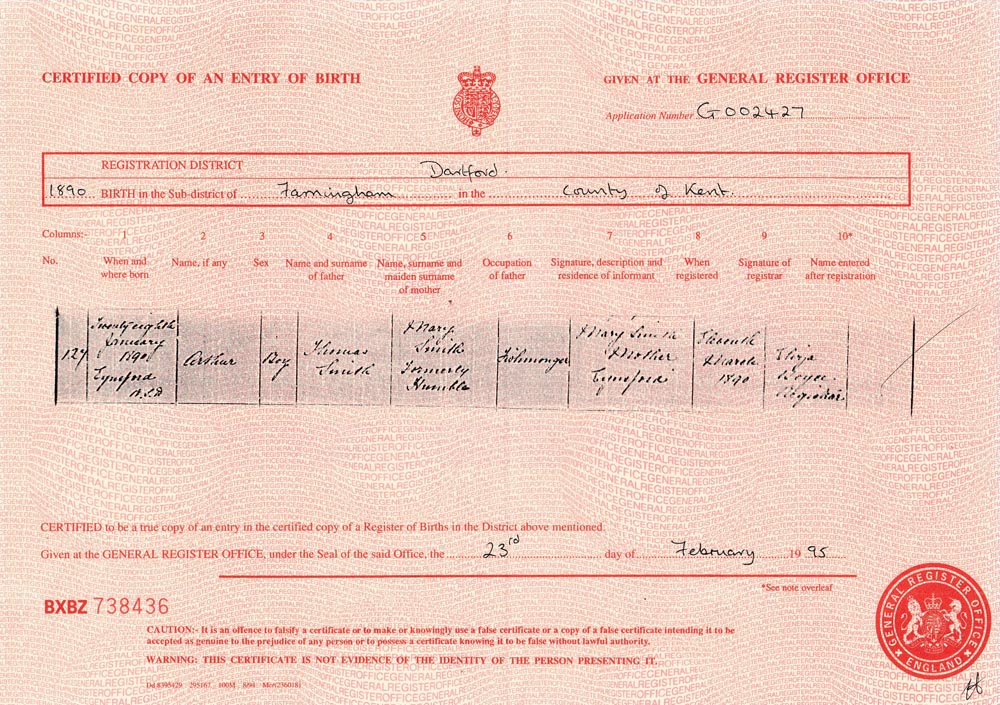 CERTIFIED COPY OF AN ENTRY OF BIRTH
GIVEN AT THE GENERAL REGISTER OFFICE
Application Number G002427
REGISTRATION DISTRICT Dartford.
1890 BIRTH in the Sub-district of Farningham in the County of Kent.
Columns:- 1 2 3 4 5 6 7 8 9 10*
No. When and where born Name, if any Sex Name and surname of father Name, surname and maiden surname of mother Occupation of father Signature, description and residence of informant When registered Signature of registrar Name entered after registration
127
Twenty eighth
January
1890
Eynsford
R.S.D
Arthur
Boy
Thomas
Smith
Mary
Smith
Formerly
Humble
Fishmonger
Mary Smith
Mother
Eynsford
March
1890
Eliza
Registrar
CERTIFIED to be a true copy of an entry in the certified copy of a Register of Births in the District above mentioned.
Given at the GENERAL REGISTER OFFICE, under the Seal of the said Office, the 23rd day of February 19 95
*See note overleaf
BXBZ 738436
CAUTION:- It is an offence to falsify a certificate or to make or knowingly use a false certificate or a copy of a false certificate intending it to be
accepted as genuine to the prejudice of any person or to possess a certificate knowing it to be false without lawful authority.
WARNING: THIS CERTIFICATE IS NOT EVIDENCE OF THE IDENTITY OF THE PERSON PRESENTING IT.
Dd 8395429 295167 100M 8/94 Mcr(236018)
GENERAL REGISTER OFFICE
ENGLAND